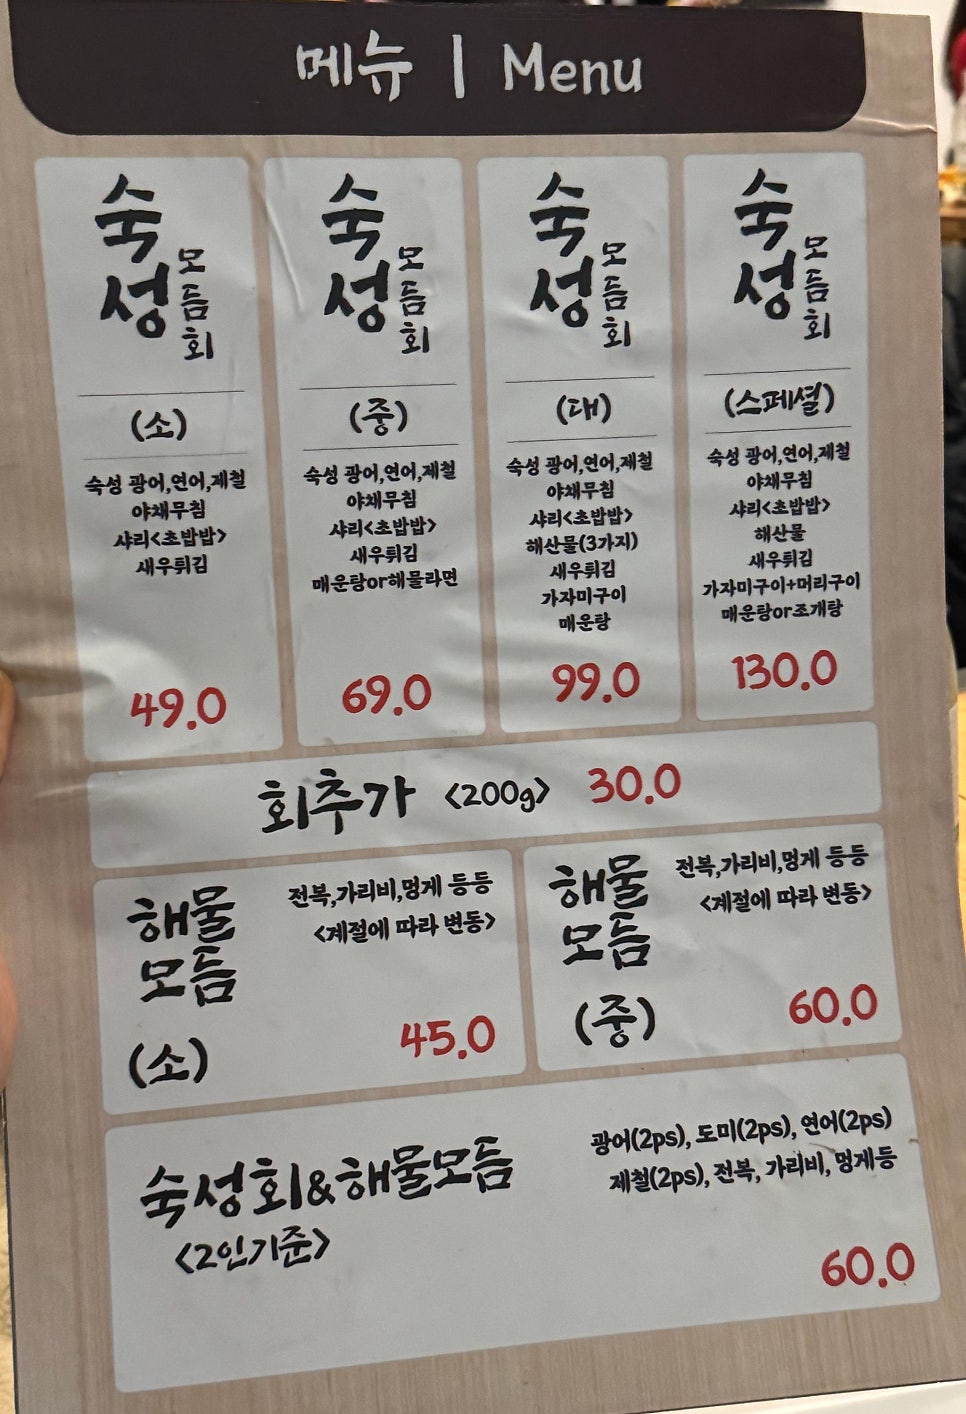 메뉴 | Menu
숙성
모듬회
(소)
숙성 광어,연어,제철
야채무침
샤리<초밥밥>
새우튀김
49.0
숙성
모듬회
(중)
숙성 광어,연어,제철
야채무침
샤리<초밥밥>
새우튀김
매운탕or해물라면
69.0
숙성
모듬회
(대)
숙성 광어,연어,제철
야채무침
샤리<초밥밥>
해산물(3가지)
새우튀김
가자미구이
매운탕
99.0
숙성
모듬회
(스페셜)
숙성 광어,연어,제철
야채무침
샤리<초밥밥>
해산물
새우튀김
가자미구이+머리구이
매운탕or조개탕
130.0
회추가 <200g> 30.0
해물
모듬
(소)
전복,가리비,멍게 등등
<계절에 따라 변동>
45.0
해물
모듬
(중)
전복,가리비,멍게 등등
<계절에 따라 변동>
60.0
숙성회&해물모듬
<2인기준>
광어(2ps), 도미(2ps), 연어(2ps)
제철(2ps), 전복, 가리비, 멍게등
60.0